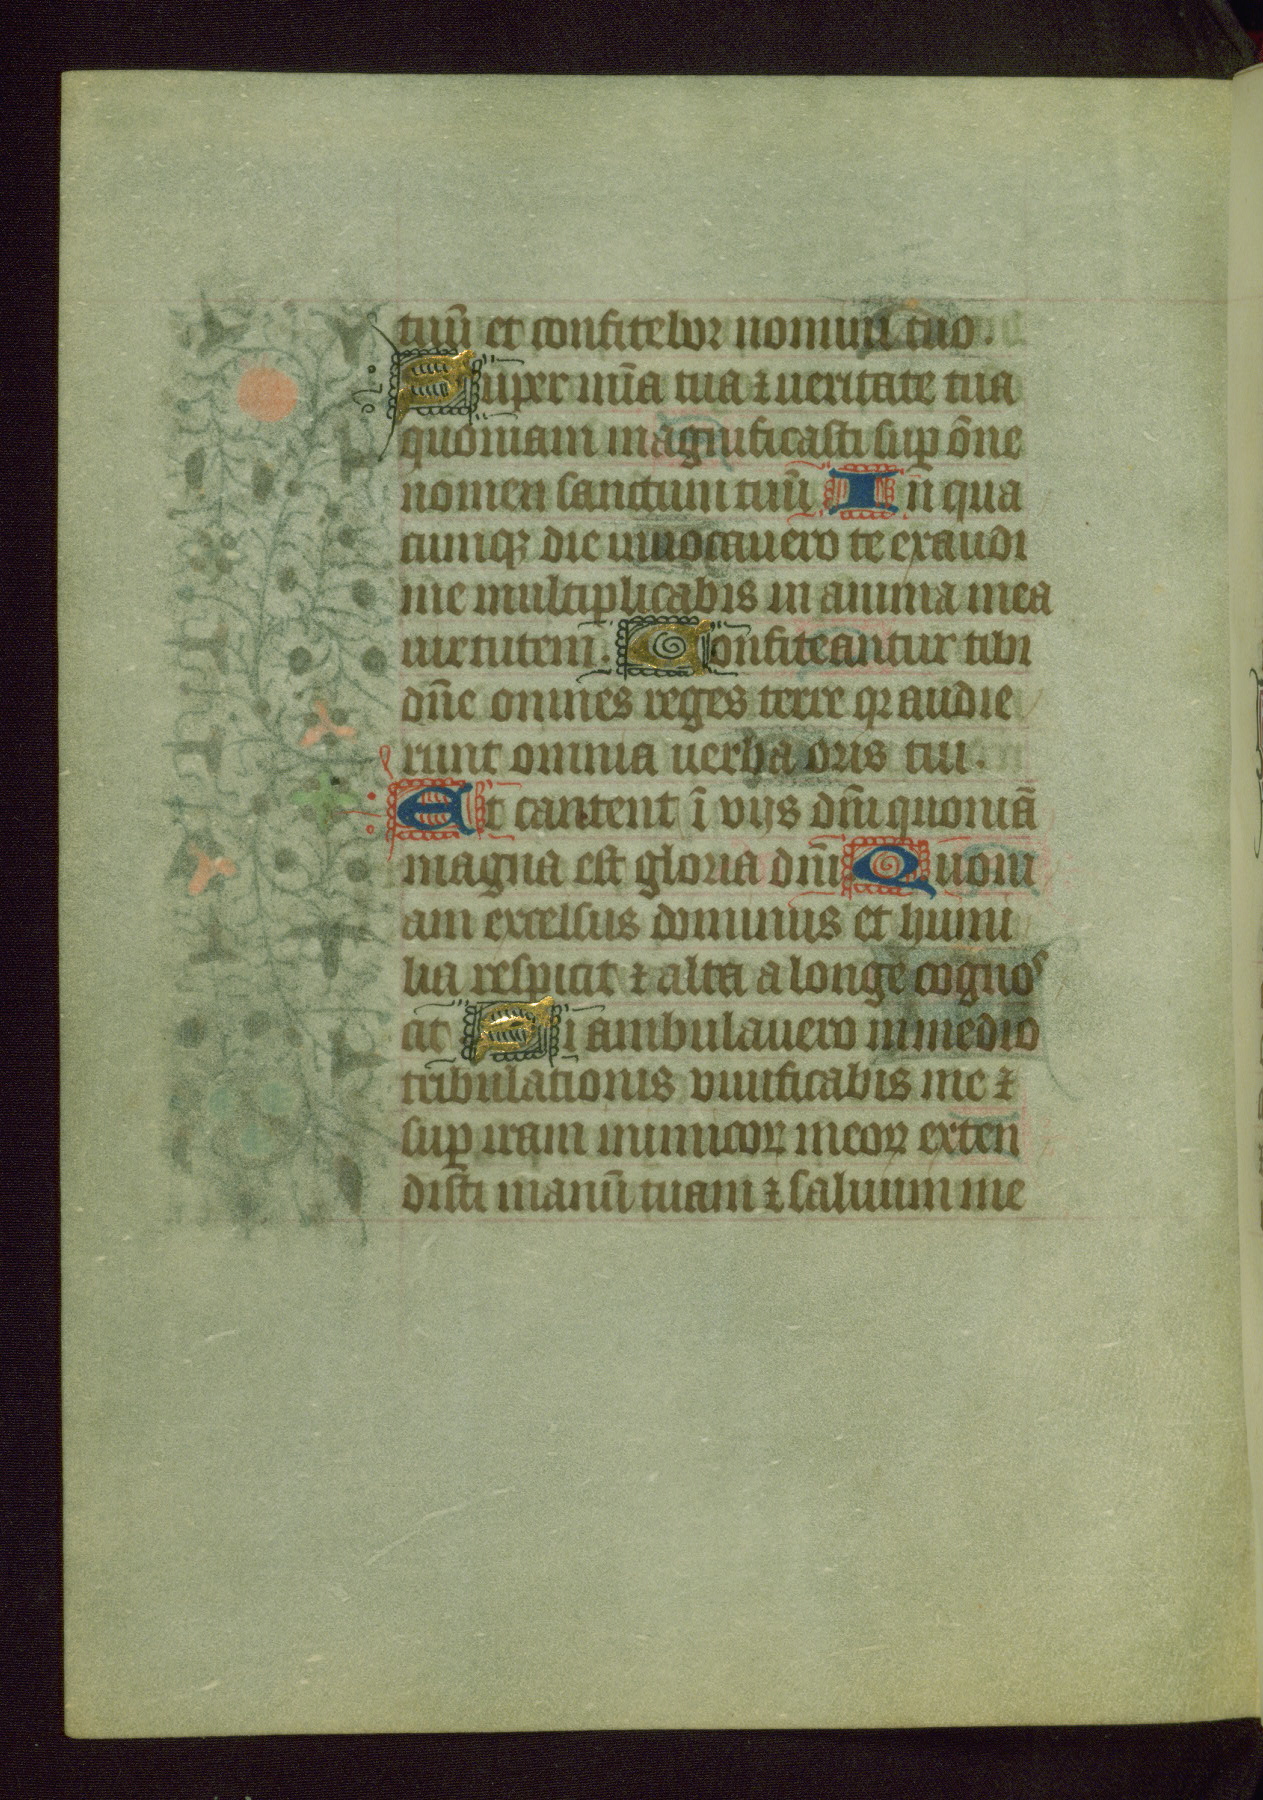 tuū et confitebor nomini tuo.
Super mīa tua ⁊ ueritate tua
quoniam magnificasti suꝑ ōne
nomen sanctum tuū In qua
cumqꝫ die inuocauero te exaudi
me multiplicabis in anima mea
uirtutem. Confiteantur tibi
dn̄e omnes reges terre qꝛ audie
runt omnia uerba oris tui.
Et cantent ī vijs dn̄i quoniā
magna est gloria dn̄i Quoni
am excelsus dominus et humi
lia respicit ⁊ alta a longe cognos
cit Si ambulauero in medio
tribulationis viuificabis me ⁊
suꝑ iram inimicoꝝ meoꝝ exten
disti manū tuam ⁊ saluum me